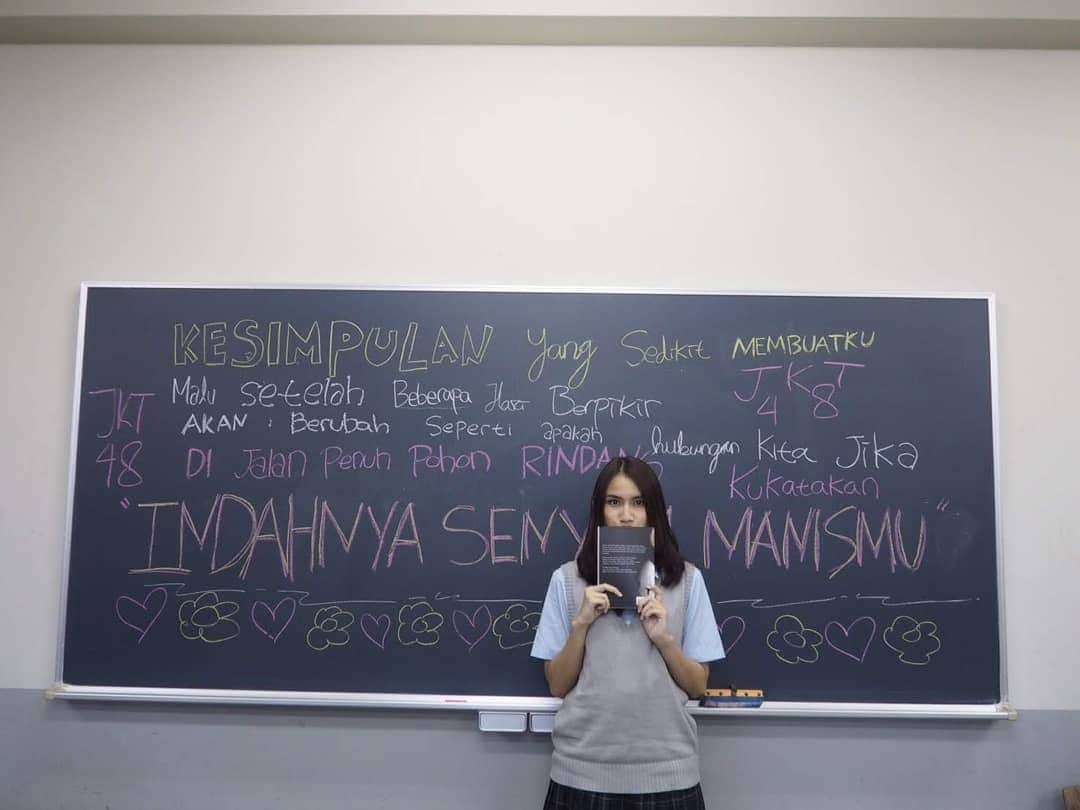 KESIMPULAN Yang Sedikit MEMBUATKU
Malu setelah Beberapa Hari Berpikir
JKT 48
AKAN : Berubah Seperti apakah hubungan Kita Jika
JKT
48
DI Jalan Penuh Pohon RINDANG Kukatakan
"INDAHNYA SENY MANISMU"